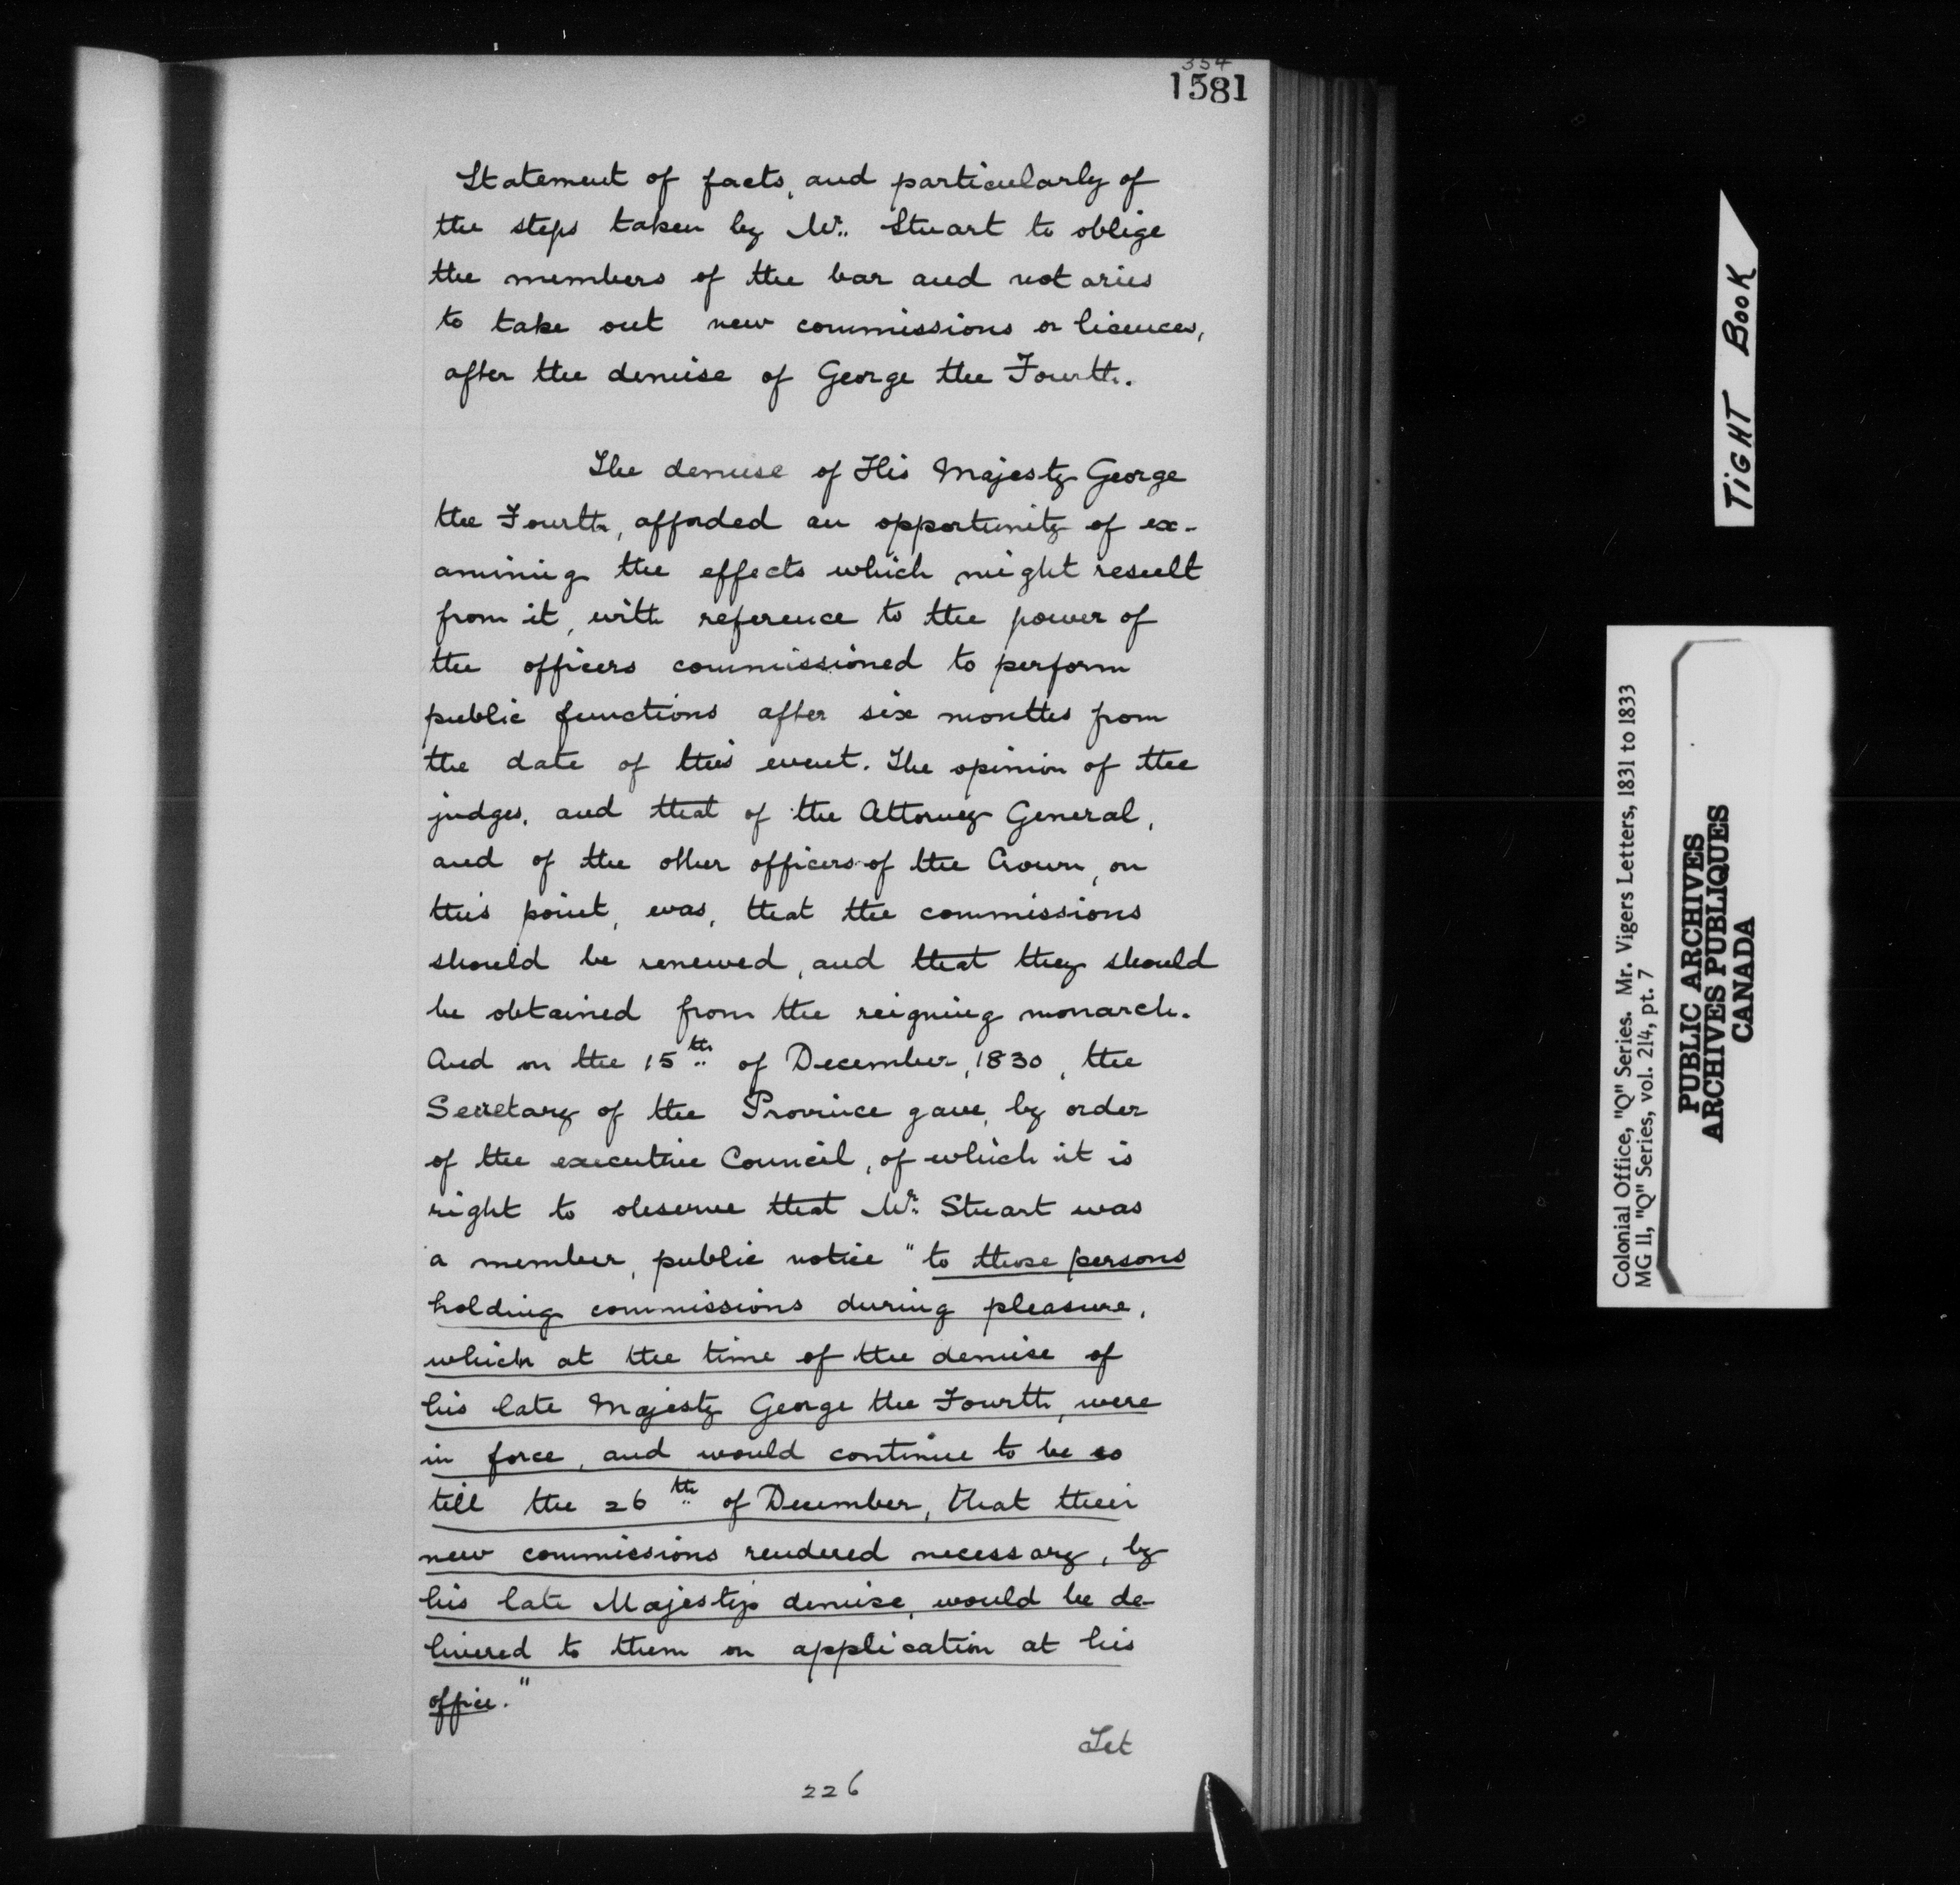 354
1581
Statement of facts, and particularly of
the steps taken by Mr. Stuart to oblige
the members of the bar and notaries
to take out new commissions or licences,
after the demise of George the Fourth.
The demise of His Majesty George
the Fourth, afforded an opportunity of ex-
amining the effects which might result
from it, with reference to the power of
the officers commissioned to perform
public functions after six months from
the date of this event. The opinion of the
judges, and that of the Attorney General,
and of the other officers of the Crown, on
this point, was, that the commissions
should be renewed, and that they should
be obtained from the reigning monarch.
And on the 15th of December, 1830, the
Secretary of the Province gave, by order
of the executive Council, of which it is
right to observe that Mr. Stuart was
a member, public notice "to those persons
holding commissions during pleasure,
which at the time of the demise of
his late Majesty George the Fourth, were
in force, and would continue to be so
till the 26th of December, that their
new commissions rendered necessary, by
his late Majesty's demise, would be de-
livered to them on application at his
office."
Let
226
TIGHT BOOK
Colonial Office, "Q" Series. Mr. Vigers Letters, 1831 to 1833
MG 11, "Q" Series, vol. 214, pt. 7
PUBLIC ARCHIVES
ARCHIVES PUBLIQUES
CANADA